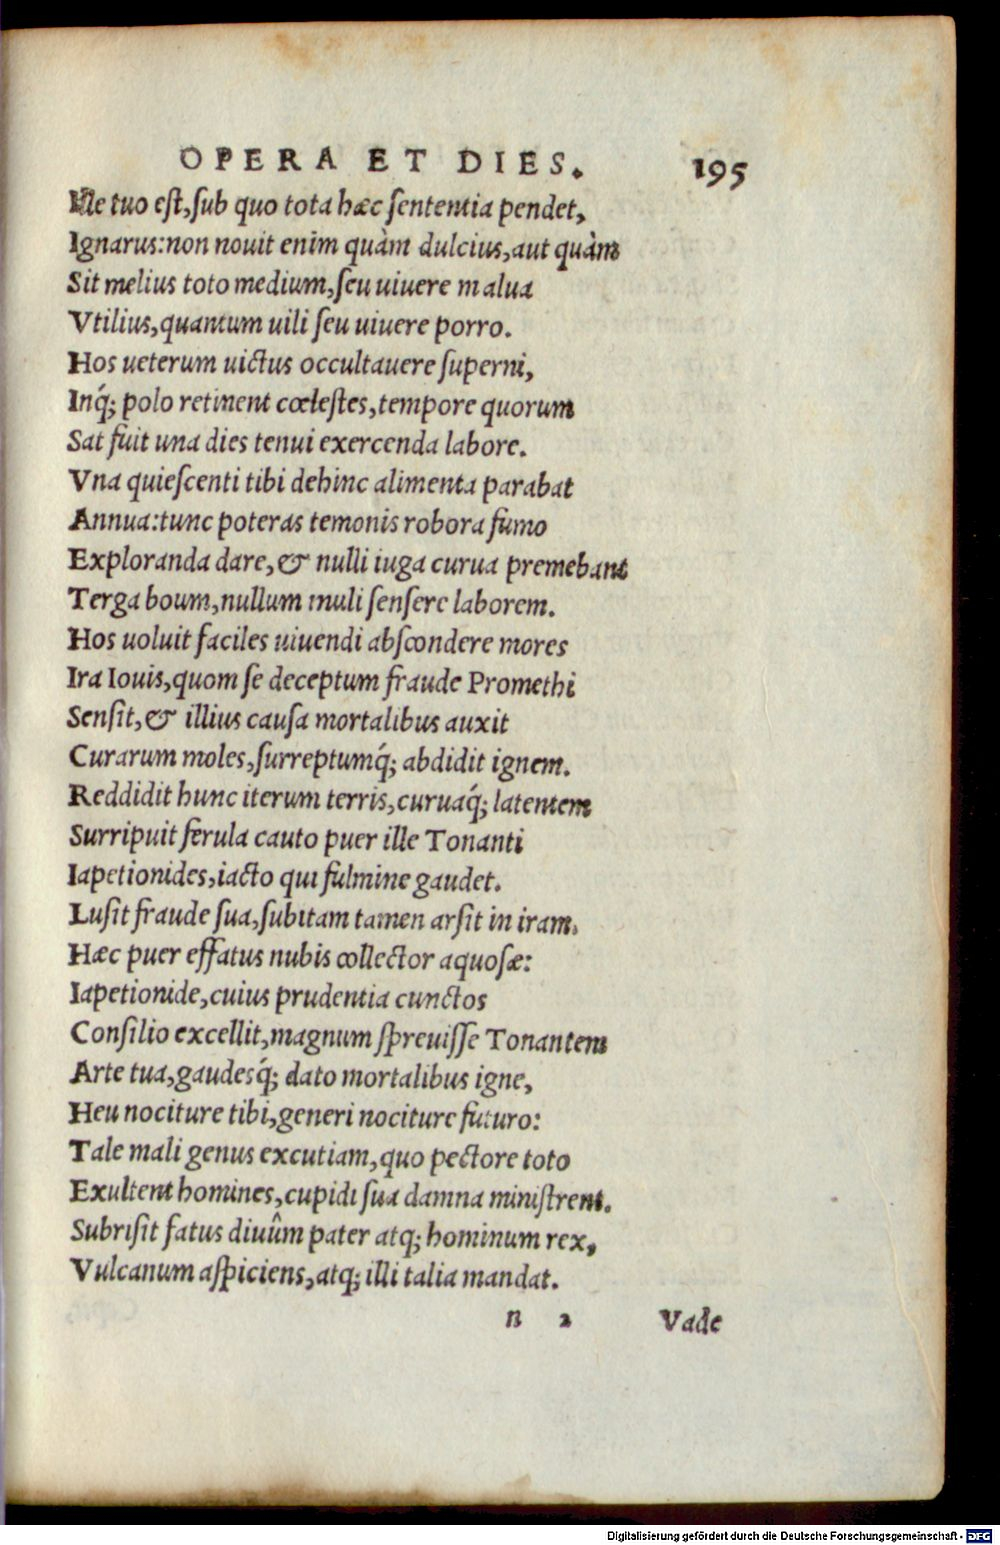 OPERA ET DIES. 195
Ille tuo eſt,ſub quo tota hæc ſententia pendet,
Ignarus:non nouit enim quàm dulcius,aut quàm
Sit melius toto medium,ſeu uiuere malua
Vtilius,quantum uili ſeu uiuere porro.
Hos ueterum uictus occultauere ſuperni,
Inq́; polo retinent cœleſtes,tempore quorum
Sat fuit una dies tenui exercenda labore.
Vna quieſcenti tibi dehinc alimenta parabat
Annua:tunc poteras temonis robora fumo
Exploranda dare,& nulli iuga curua premebant
Terga boum,nullum muli ſenſere laborem.
Hos uoluit faciles uiuendi abſcondere mores
Ira Iouis,quom ſe deceptum fraude Promethi
Senſit,& illius cauſa mortalibus auxit
Curarum moles,ſurreptumq́; abdidit ignem.
Reddidit hunc iterum terris,curuaq́; latentem
Surripuit ferula cauto puer ille Tonanti
Iapetionides,iacto qui fulmine gaudet.
Luſit fraude ſua,ſubitam tamen arſit in iram.
Hæc puer effatus nubis collector aquoſæ:
Iapetionide,cuius prudentia cunctos
Conſilio excellit,magnum ſpreuiſſe Tonantem
Arte tua,gaudesq́; dato mortalibus igne,
Heu nociture tibi,generi nociture futuro:
Tale mali genus excutiam,quo pectore toto
Exultent homines,cupidi ſua damna miniſtrent.
Subriſit fatus diuûm pater atq; hominum rex,
Vulcanum aſpiciens,atq; illi talia mandat.
n 2 Vade
Digitalisierung gefördert durch die Deutsche Forschungsgemeinschaft - DFG